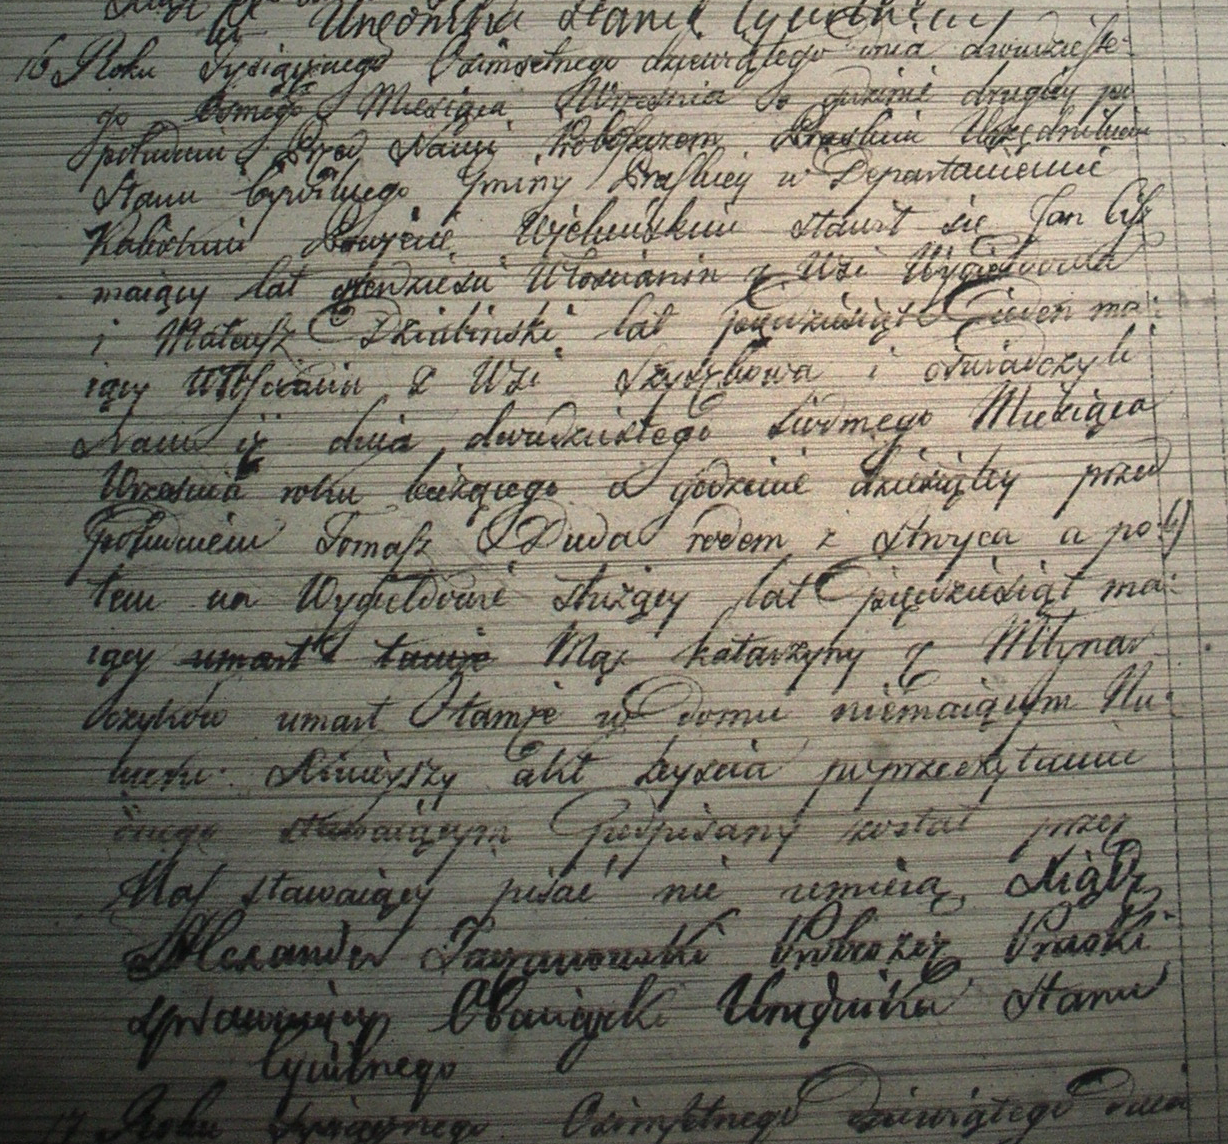 Urzędnika Stanu Cywilnego
16 Roku Tysiącznego Osimsetnego dziewiątego dnia dwudzieste-
go osmego Miesiąca Września o godzinie drugiey po
południu Przed Nami Proboszczem Praskim Urzędnikiem
Stanu Cywilnego Gminy Praskiey w Departamencie
Kaliskim Powiecie Wieluńskim stawił się Jan
maiący lat Włoscianin z Wsi Wygiełdowa
i Mateusz Dzialinski lat pięcdziesiąt Jeden ma:
iący Włoscianin z Wsi Szyszkowa i oswiadczyli
Nam iż dnia dwudziestego siodmego Miesiąca
Września roku bieżącego o godzinie dziesiątey przed
południem Tomasz Duda rodem z a po:
tem na Wygiełdowie służący lat pięcdziesiąt ma:
iący umarł tamże Mąż Katarzyny z Młynar
czyków umarł tamże w domu niemaiącym Nu:
meru. Ninieyszy akt zeyscia po przeczytaniu
onego stawaiącym Podpisany został przez
Nas stawaiący pisać nie umieią Xiądz
Alexander Proboszcz Praski
sprawuiący Obowiązki Urzędnika Stanu
Cywilnego
17 Roku Tysiącznego Osimsetnego dziewiątego dnia